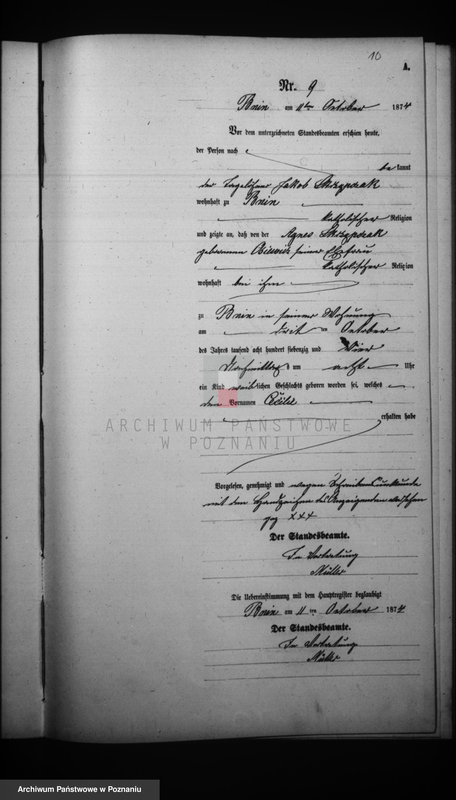 10
A.
Nr. 9
Bnin am 11ten October 1874
Vor dem unterzeichneten Standesbeamten erschien heute,
der Person nach
bekannt
der Tagelöhner Jakob Skrzypczak
wohnhaft zu Bnin
katholischer Religion
und zeigte an, daß von der Agnes Skrzypczak
geborenen seiner Ehefrau
katholischer Religion
wohnhaft bei ihm
zu Bnin in seiner Wohnung
am October
des Jahres tausend acht hundert siebenzig und vier
Nachmittags um acht Uhr
ein Kind weiblichen Geschlechts geboren worden sei, welches
den Vornamen Cäcilie
erhalten habe
ARCHIWUM PAŃSTWOWE
W POZNANIU
Vorgelesen, genehmigt und wegen Schreibensunkunde
mit dem Handzeichen des Anzeigenden versehen
gez XXX
Der Standesbeamte.
In Vertretung
Müller
Die Uebereinstimmung mit dem Hauptregister beglaubigt
Bnin am 11 ten October 1874
Der Standesbeamte.
In Vertretung
Müller
Archiwum Państwowe w Poznaniu